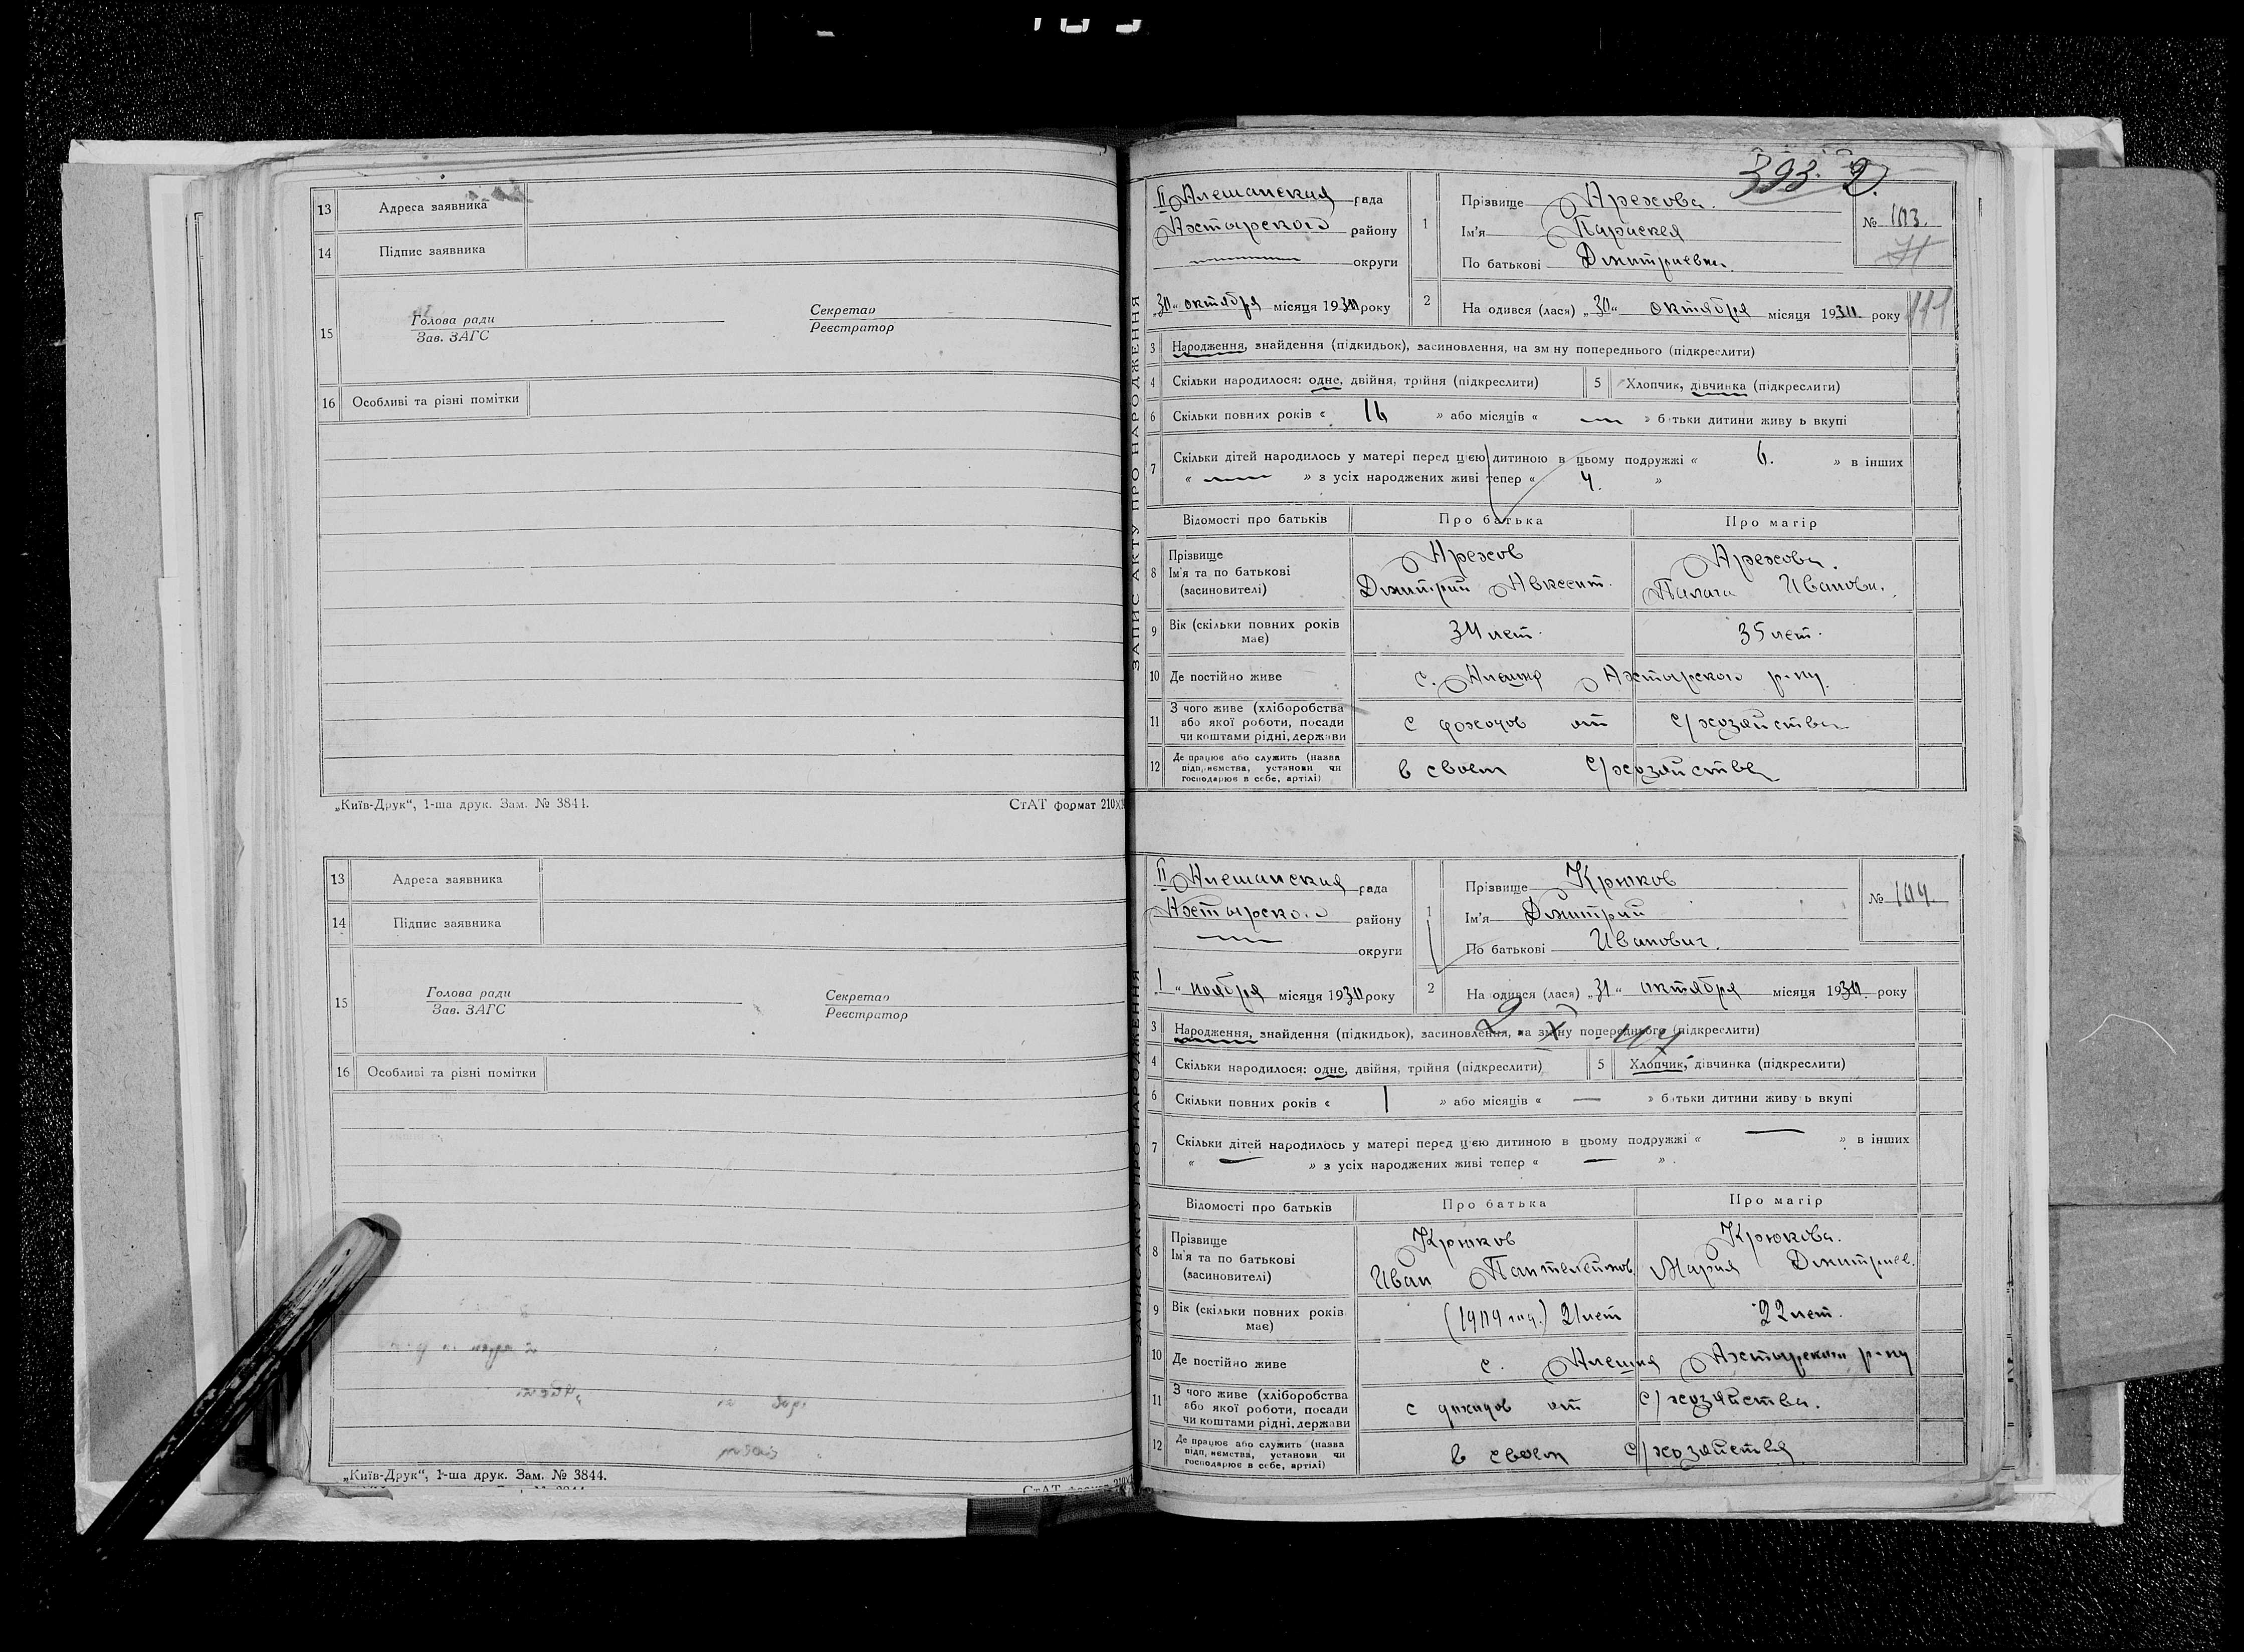 13 Адреса заявника
14 Підпис заявника
15 Голова ради Секретар
Зав. ЗАГС Реєстратор
16 Особливі та різні помітки
„Київ-Друк“, 1-ша друк. Зам. № 3844. СтАТ формат 210×
13 Адреса заявника
14 Підпис заявника
15 Голова ради Секретар
Зав. ЗАГС Реєстратор
16 Особливі та різні помітки
„Київ-Друк“, 1-ша друк. Зам. № 3844.
ЗАПИС АКТУ ПРО НАРОДЖЕННЯ
393.
II Алешанская рада
Ахтырского району
округи
„30“ октября місяця 1930 року
1 Прізвище Арехова.
Ім'я Параскея
По батькові Дмитриевна.
№ 103.
2 На одився (лася) „30“ октября місяця 1930 року
3 Народження, знайдення (підкидьок), засиновлення, на зм ну попереднього (підкреслити)
4 Скільки народилося: одне, двійня, трійня (підкреслити) 5 Хлопчик, дівчинка (підкреслити)
6 Скільки повних років « 16 » або місяців « — » б тьки дитини живу ь вкупі
7 Скільки дітей народилось у матері перед цією дитиною в цьому подружжі « 6. » в інших
« — » з усіх народжених живі тепер « 4. »
Відомості про батьків Про батька Про матір
8 Прізвище Арехов Арехова.
Ім'я та по батькові Дмитрий Авксент. Иванови.
(засиновителі)
9 Вік (скільки повних років має) 34 лет. 35 лет.
10 Де постійно живе с. Алешня Ахтырского р-ну
11 З чого живе (хліборобства або якої роботи, посади чи коштами рідні, держави с доходов от с/хозяйства
12 Де працює або служить (назва підприємства, установи чи господарює в себе, артілі) в своем с/хозяйстве
ЗАПИС АКТУ ПРО НАРОДЖЕННЯ
II Алешанская рада
Ахтырского району
округи
„1“ ноября місяця 1930 року
1 Прізвище Крюков
Ім'я Дмитрий
По батькові Иванович.
№ 104.
2 На одився (лася) „31“ октября місяця 1930. року
3 Народження, знайдення (підкидьок), засиновлення, на зміну попереднього (підкреслити)
4 Скільки народилося: одне, двійня, трійня (підкреслити) 5 Хлопчик, дівчинка (підкреслити)
6 Скільки повних років « 1 » або місяців « — » б тьки дитини живу ь вкупі
7 Скільки дітей народилось у матері перед цією дитиною в цьому подружжі « — » в інших
« — » з усіх народжених живі тепер « — »
Відомості про батьків Про батька Про матір
8 Прізвище Крюков Крюкова.
Ім'я та по батькові Иван Пантелеймов. Мария Дмитриев.
(засиновителі)
9 Вік (скільки повних років має) (1909 год.) 21 лет 22 лет.
10 Де постійно живе с. Алешня Ахтырского р-ну
11 З чого живе (хліборобства або якої роботи, посади чи коштами рідні, держави с доходов от с/хозяйства.
12 Де працює або служить (назва підприємства, установи чи господарює в себе, артілі) в своем с/хозяйстве